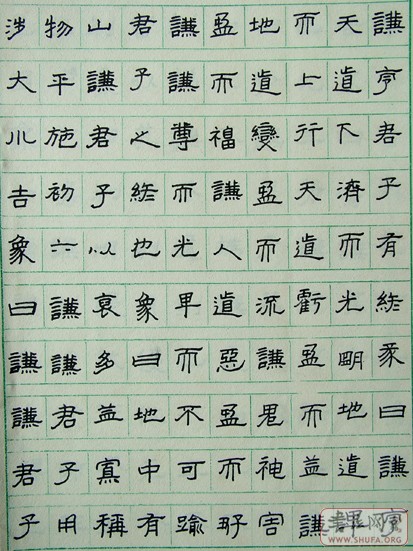 謙亨君子有終彖曰謙
天道下濟而光明地道
而上行天道虧盈而益謙
地道變盈而流謙鬼神害
盈而福謙人道惡盈而好
謙謙尊而光卑而不可踰
君子之終也象曰地中有
山謙君子以裒多益寡稱
物平施初六謙謙君子用
涉大川吉象曰謙謙君子
WWW.SHUFA.ORG